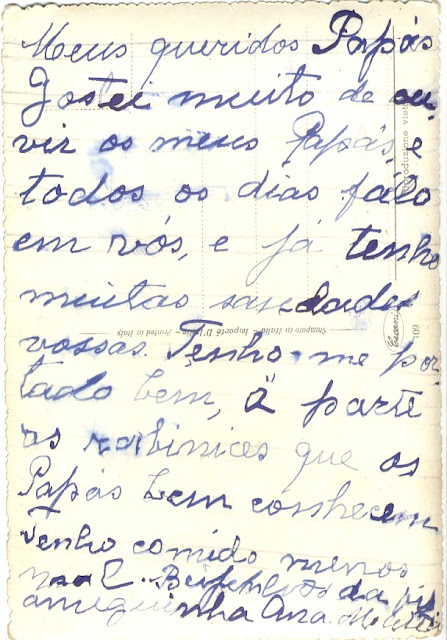 Meus queridos Papás
Gostei muito de ou-
vir os meus Papás, e
todos os dias fálo
em vós, e já tenho
muitas saudades
vossas. Tenho-me por
tado bem, á parte
as rabinices que os
Papás bem conhecem
Tenho comido menos
mal. da
amiguinha Ana.
Stampato in Italia - Importé D'Italie - Printed in Italy
109